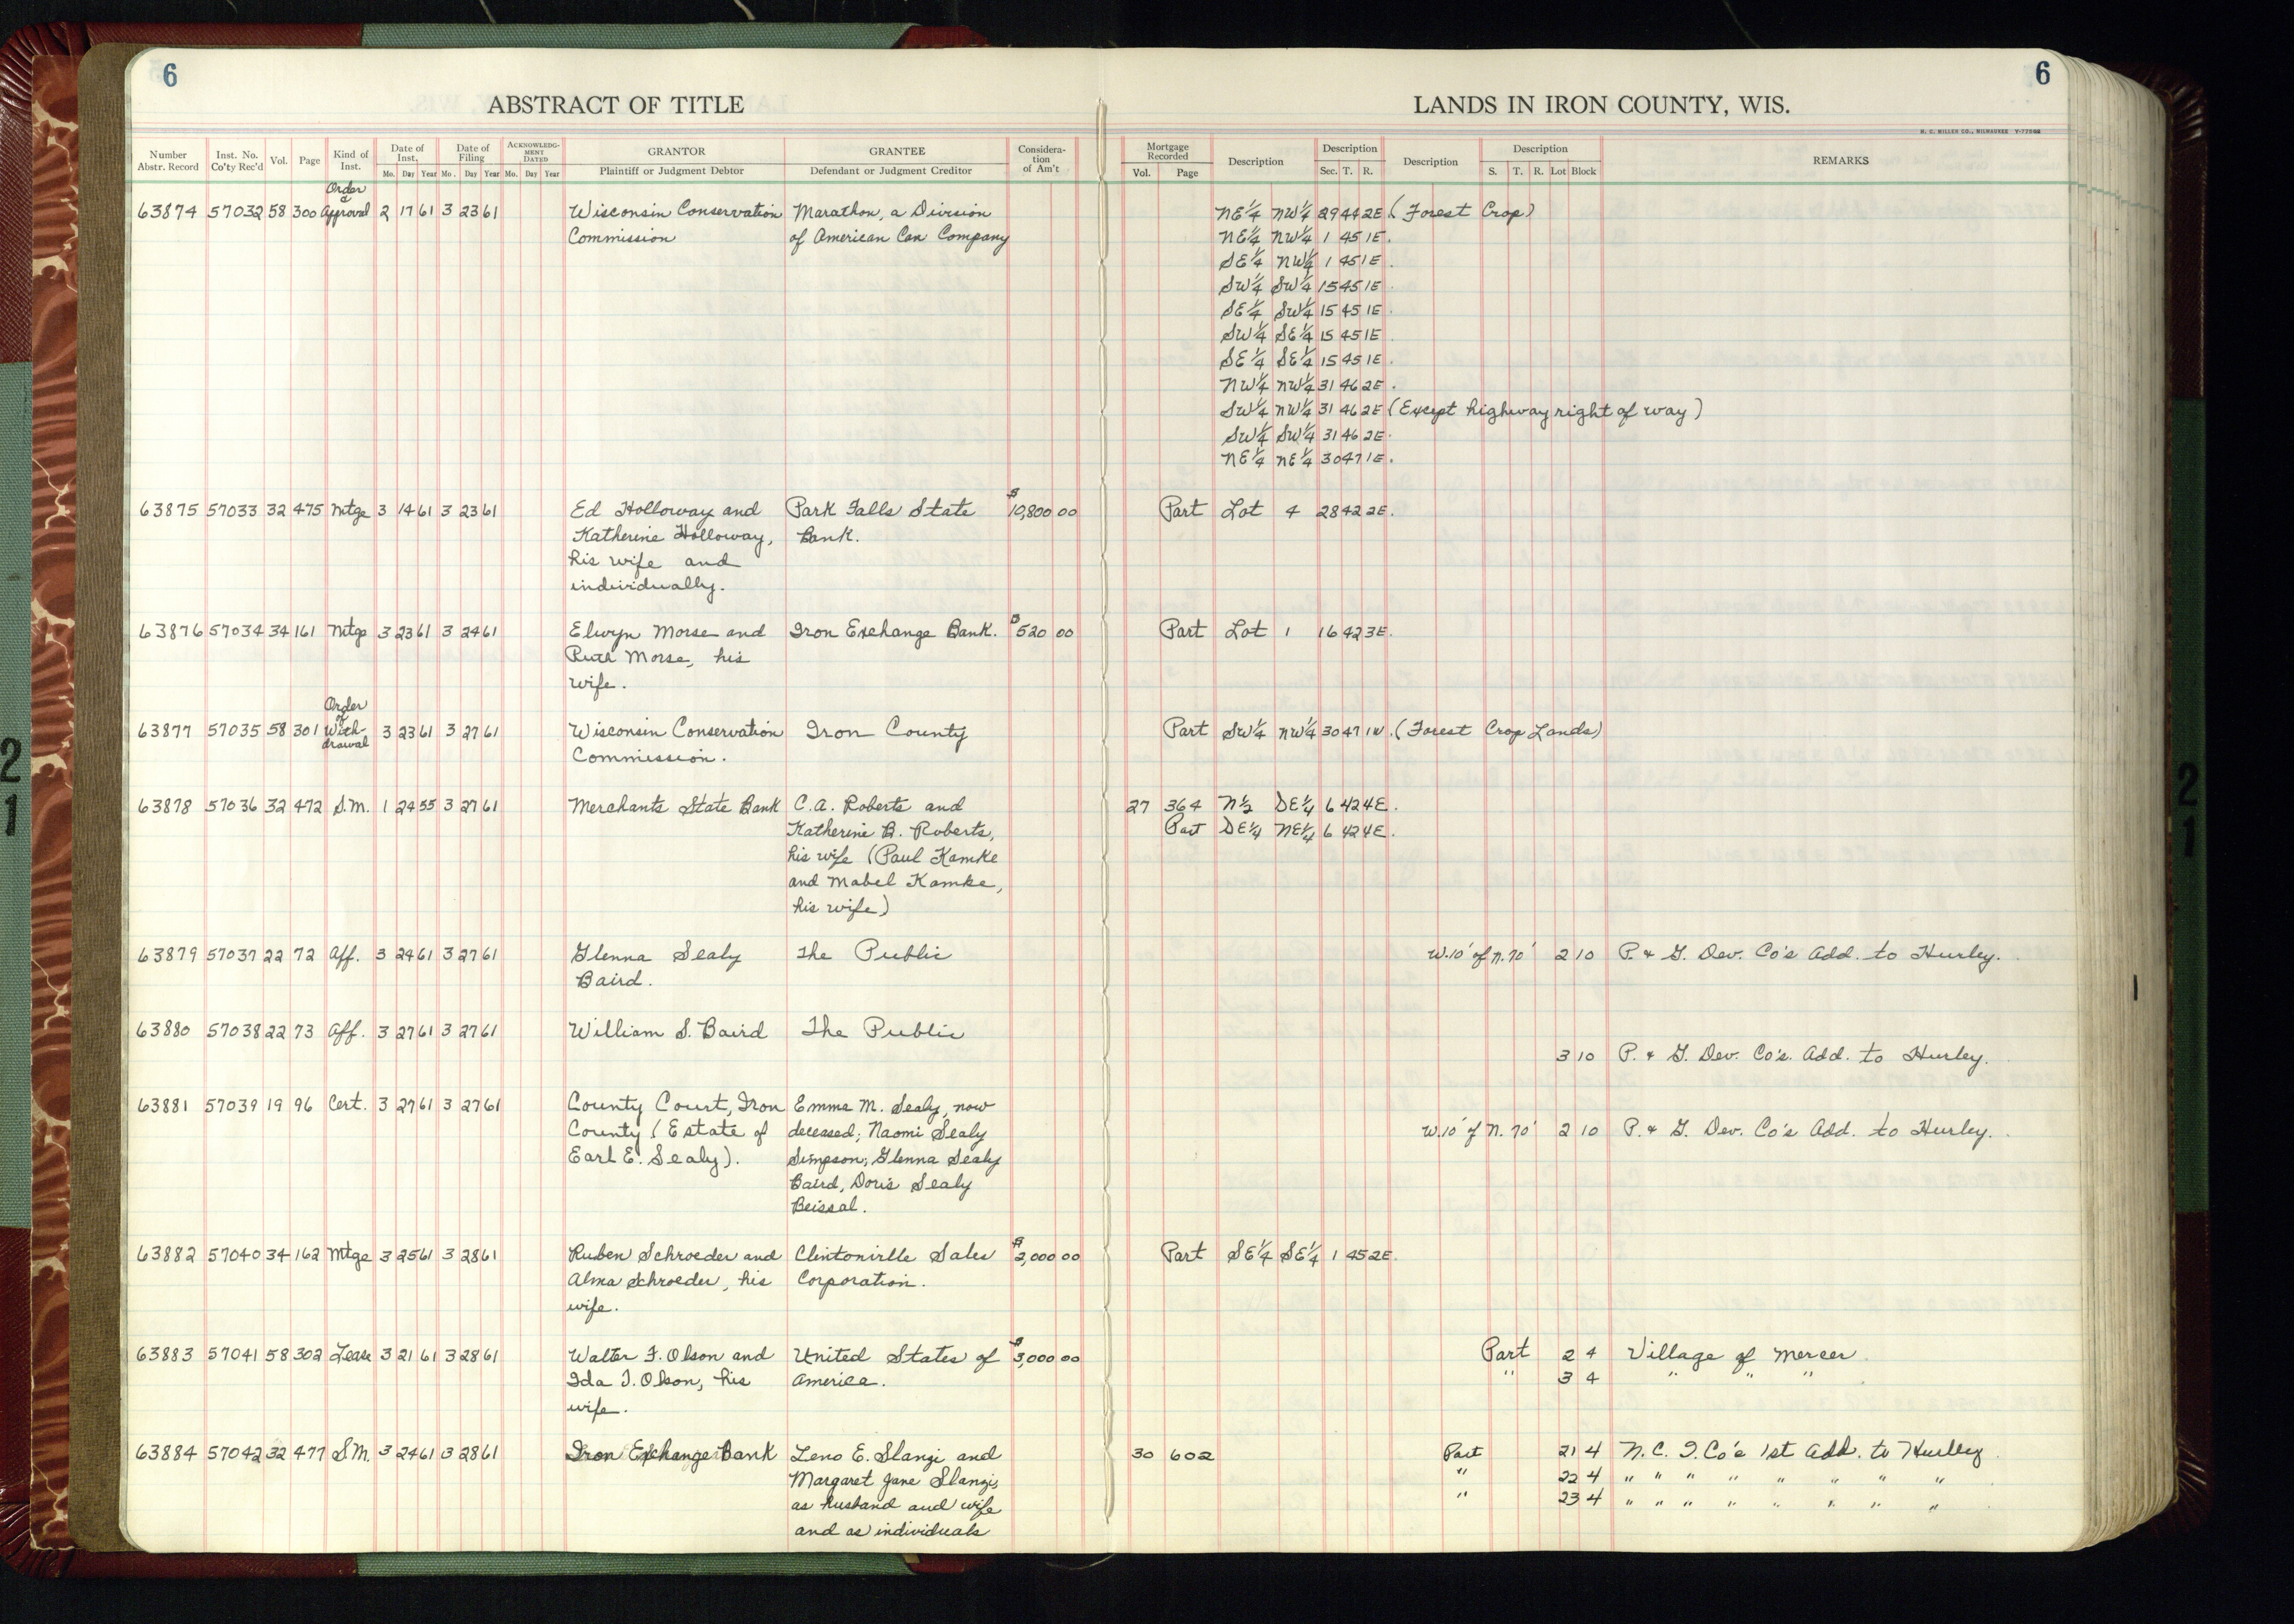 6
6
ABSTRACT OF TITLE
LANDS IN IRON COUNTY, WIS.
H. C. MILLER CO., MILWAUKEE
Number Abstr. Record Inst. No. Co'ty Rec'd Vol. Page Kind of Inst. Date of Inst. Mo. Day Year Date of Filing Mo. Day Year ACKNOWLEDGMENT DATED Mo. Day Year GRANTOR Plaintiff or Judgment Debtor GRANTEE Defendant or Judgment Creditor Consideration of Am't
Mortgage Recorded Vol. Page Description Description Sec. T. R. Description Description S. T. R. Lot Block REMARKS
Order of
63874 57032 58 300 Approval 2 17 61 3 23 61 Wisconsin Conservation Marathon, a Division NE 1/4 NW 1/4 29 44 2E. (Forest Crop)
Commission of American Can Company NE 1/4 NW 1/4 1 45 1E.
SE 1/4 NW 1/4 1 45 1E.
SW 1/4 SW 1/4 15 45 1E.
SE 1/4 SW 1/4 15 45 1E.
SW 1/4 SE 1/4 15 45 1E.
SE 1/4 SE 1/4 15 45 1E.
NW 1/4 NW 1/4 31 46 2E.
SW 1/4 NW 1/4 31 46 2E (Except highway right of way)
SW 1/4 SW 1/4 31 46 2E.
NE 1/4 NE 1/4 30 47 1E.
63875 57033 32 475 Mtge 3 14 61 3 23 61 Ed Holloway and Park Falls State $10,800 00 Part Lot 4 28 42 2E.
Katherine Holloway, Bank.
his wife and
individually.
63876 57034 34 161 Mtge 3 23 61 3 24 61 Elwyn Morse and Iron Exchange Bank. $520 00 Part Lot 1 16 42 3E.
Ruth Morse, his
wife.
Order of
63877 57035 58 301 With- 3 23 61 3 27 61 Wisconsin Conservation Iron County Part SW 1/4 NW 1/4 30 47 1W. (Forest Crop Lands)
drawal Commission.
63878 57036 32 472 S.M. 1 24 55 3 27 61 Merchants State Bank C.A. Roberts and 27 364 N 1/2 SE 1/4 6 42 4E.
Katherine B. Roberts, Part SE 1/4 NE 1/4 6 42 4E.
his wife (Paul Kamke
and Mabel Kamke,
his wife)
63879 57037 22 72 Aff. 3 24 61 3 27 61 Glenna Sealy The Public W. 10' of N. 70' 2 10 P. & G. Dev. Co's Add. to Hurley.
Baird.
63880 57038 22 73 Aff. 3 27 61 3 27 61 William S. Baird The Public
3 10 P. & G. Dev. Co's. Add. to Hurley.
63881 57039 19 96 Cert. 3 27 61 3 27 61 County Court, Iron Emma M. Sealy, now
County (Estate of deceased; Naomi Sealy W. 10' of N. 70' 2 10 P. & G. Dev. Co's Add. to Hurley.
Earl E. Sealy). Simpson; Glenna Sealy
Baird, Doris Sealy
Beissal.
63882 57040 34 162 Mtge 3 25 61 3 28 61 Ruben Schroeder and Clintonville Sales $2,000 00 Part SE 1/4 SE 1/4 1 45 2E.
Alma Schroeder, his Corporation.
wife.
63883 57041 58 302 Lease 3 21 61 3 28 61 Walter F. Olson and United States of $3,000 00 Part 2 4 Village of Mercer
Ida I. Olson, his America. " 3 4 " " "
wife.
63884 57042 32 477 S.M. 3 24 61 3 28 61 Iron Exchange Bank Leno E. Slanzi and 30 602 Part 21 4 N. C. I. Co's 1st Add. to Hurley
Margaret Jane Slanzi, " 22 4 " " " " " " " "
as husband and wife " 23 4 " " " " " " " "
and as individuals
2
1
2
1